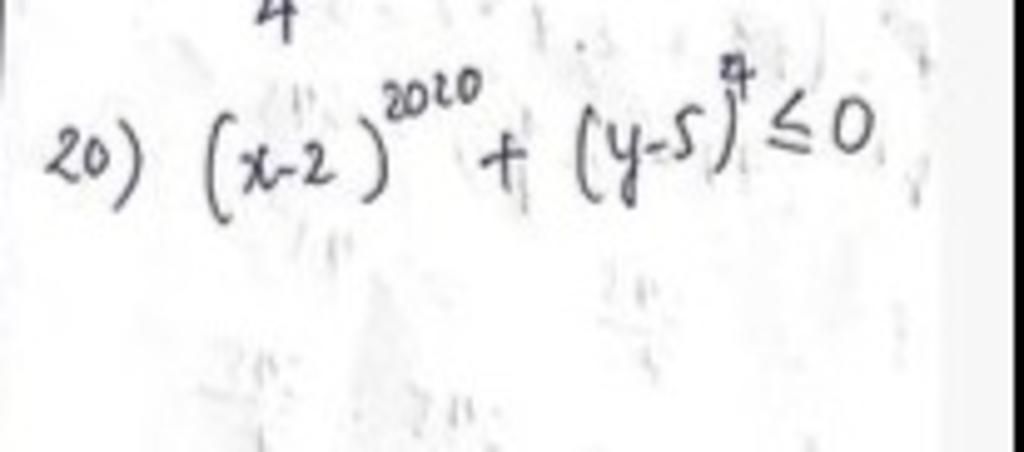 4
20) (x-2)^2020 + (y-5)^4 ≤ 0